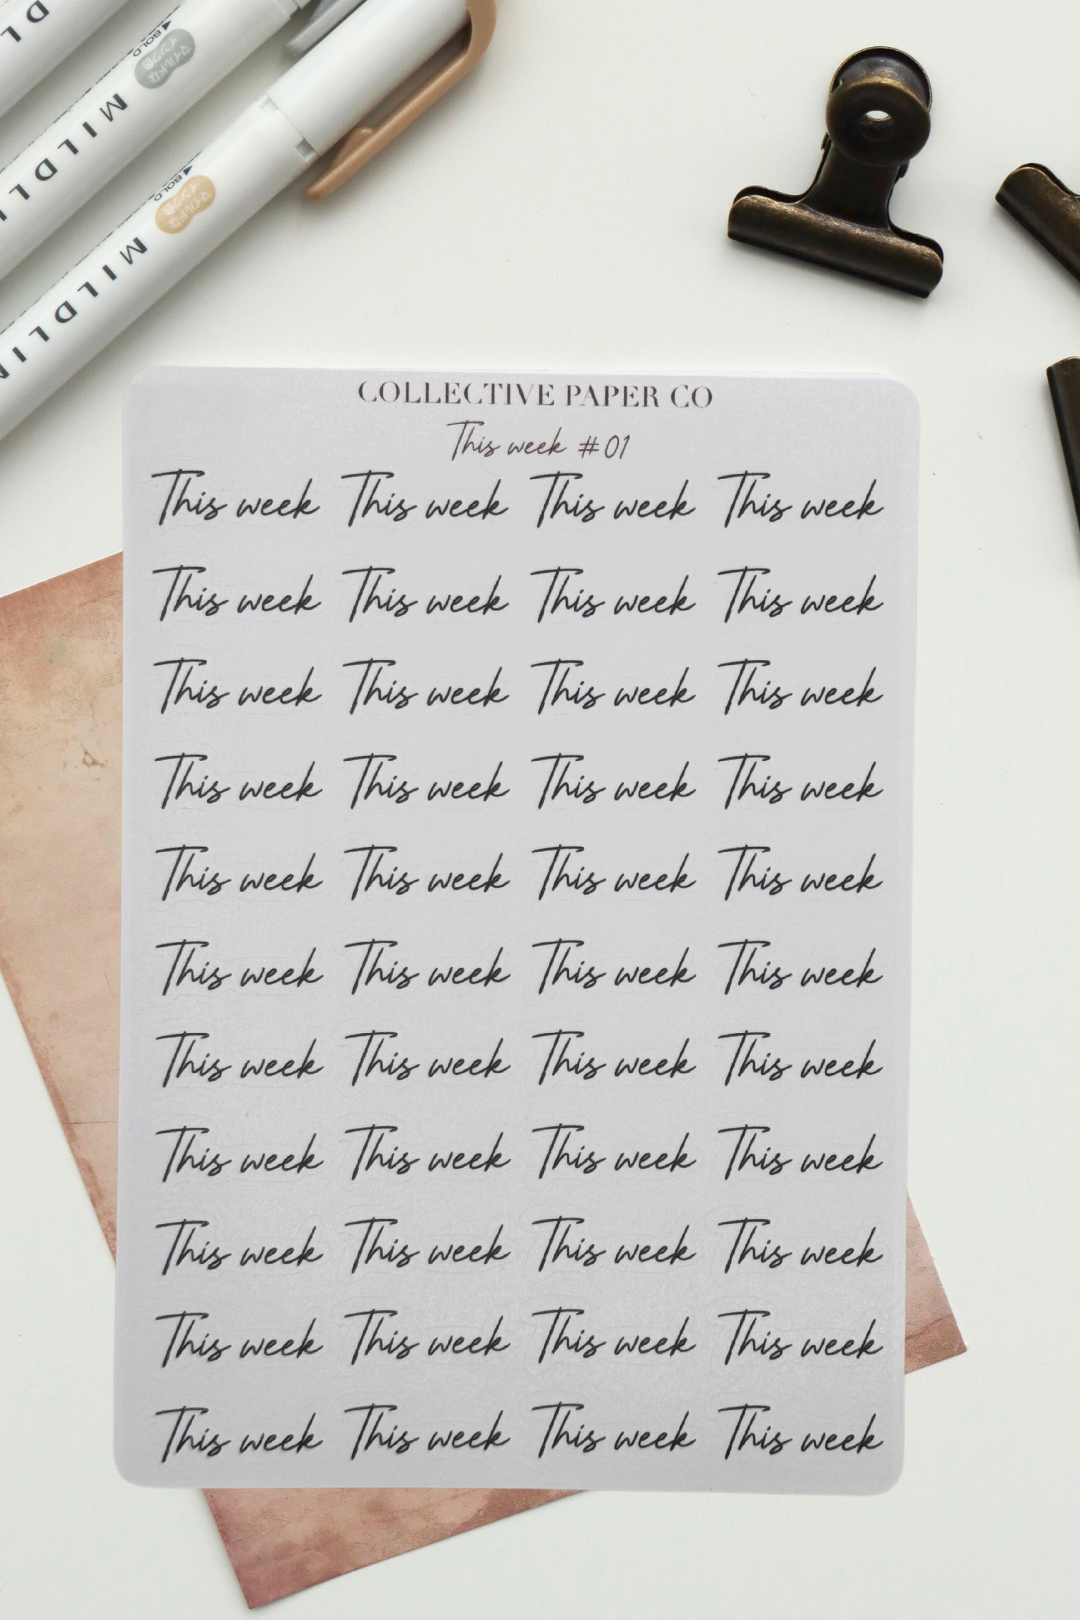 D L
BOLD
マイルドな
インク色
MILDLI
BOLD
マイルドな
インク色
MILDLIN
COLLECTIVE PAPER CO
This week #01
This week This week This week This week
This week This week This week This week
This week This week This week This week
This week This week This week This week
This week This week This week This week
This week This week This week This week
This week This week This week This week
This week This week This week This week
This week This week This week This week
This week This week This week This week
This week This week This week This week